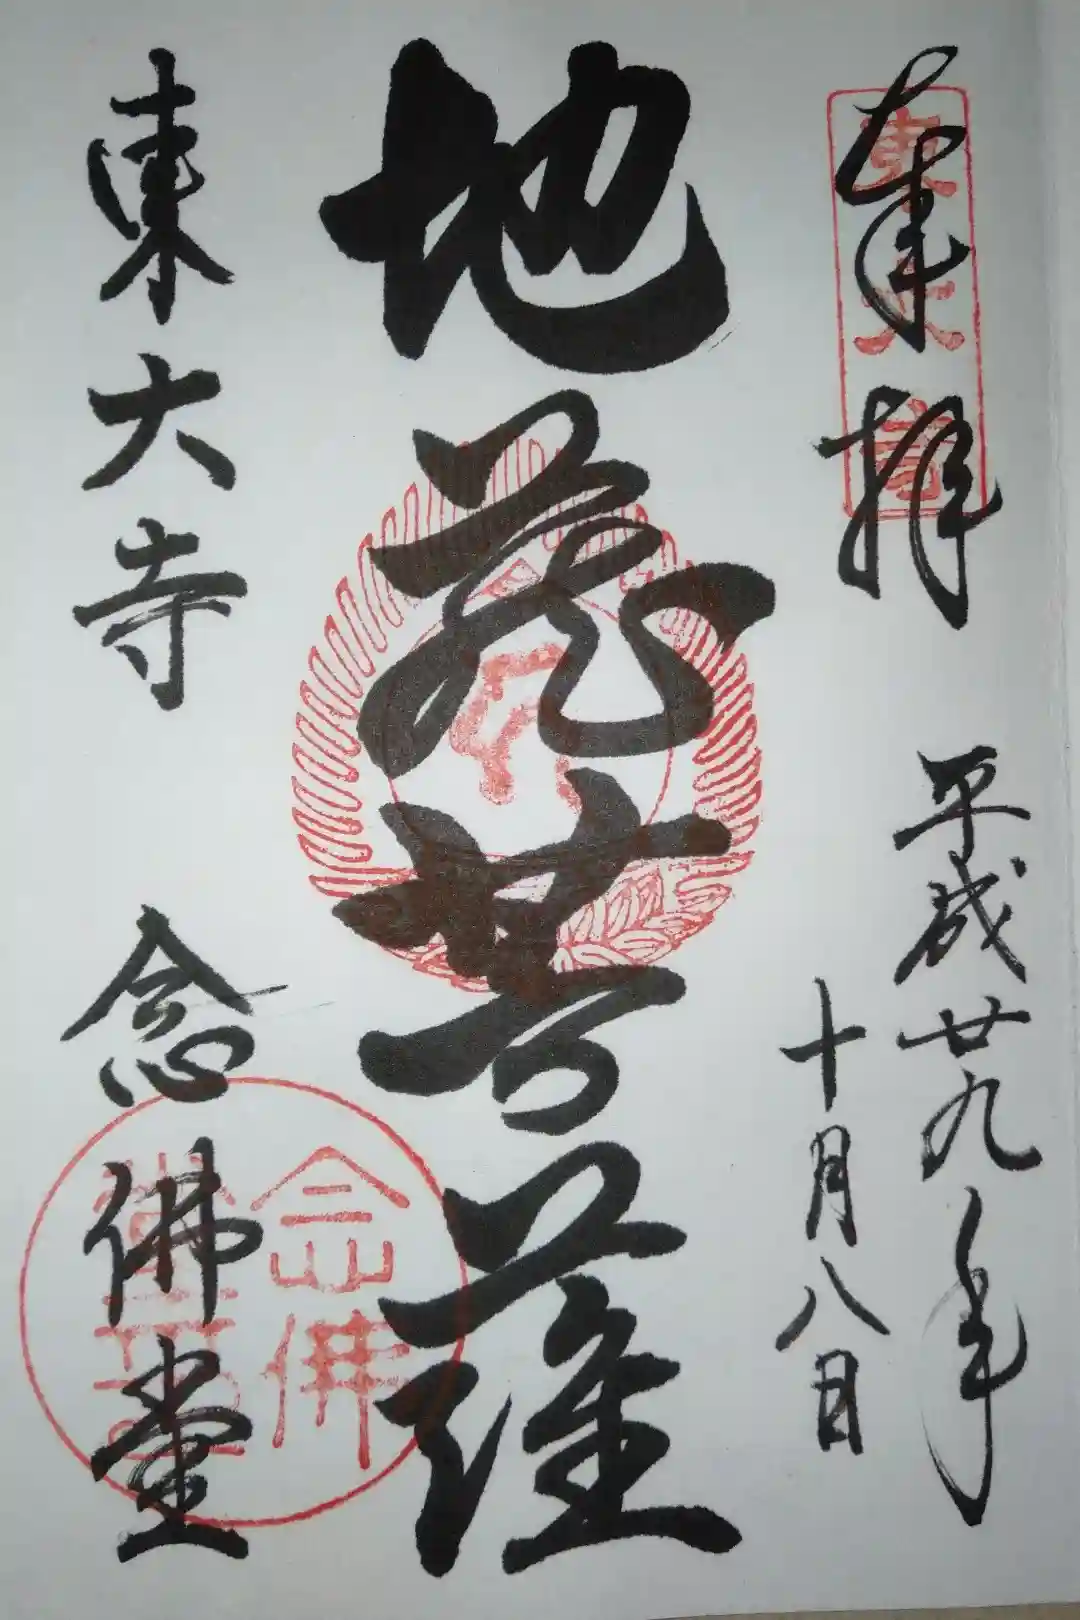 奉拝
平成廿九年
十月八日
地蔵菩薩
東大寺 念佛堂
東大寺
念佛